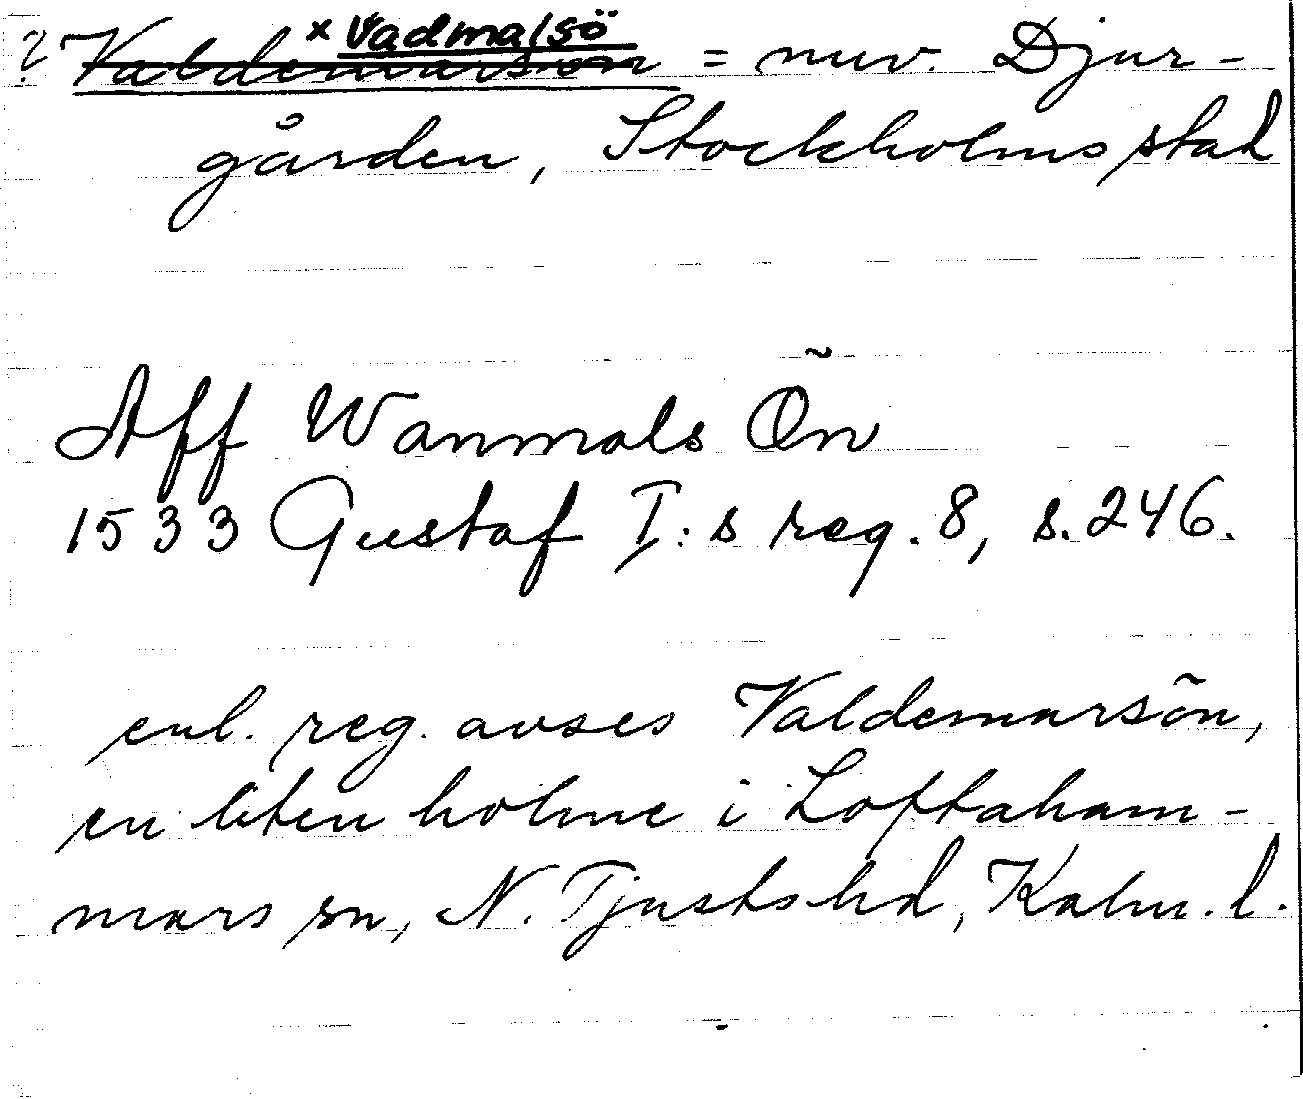 × Vadmalsö
? Valdemarsön = nuv. Djur-
gården, Stockholms stad
Aff Wanmals Ön
1533 Gustaf I:s reg. 8, s. 246.
enl. reg. avses Valdemarsön,
en liten holme i Loftaham-
mars sn, N. Tjusts hd, Kalm. l.